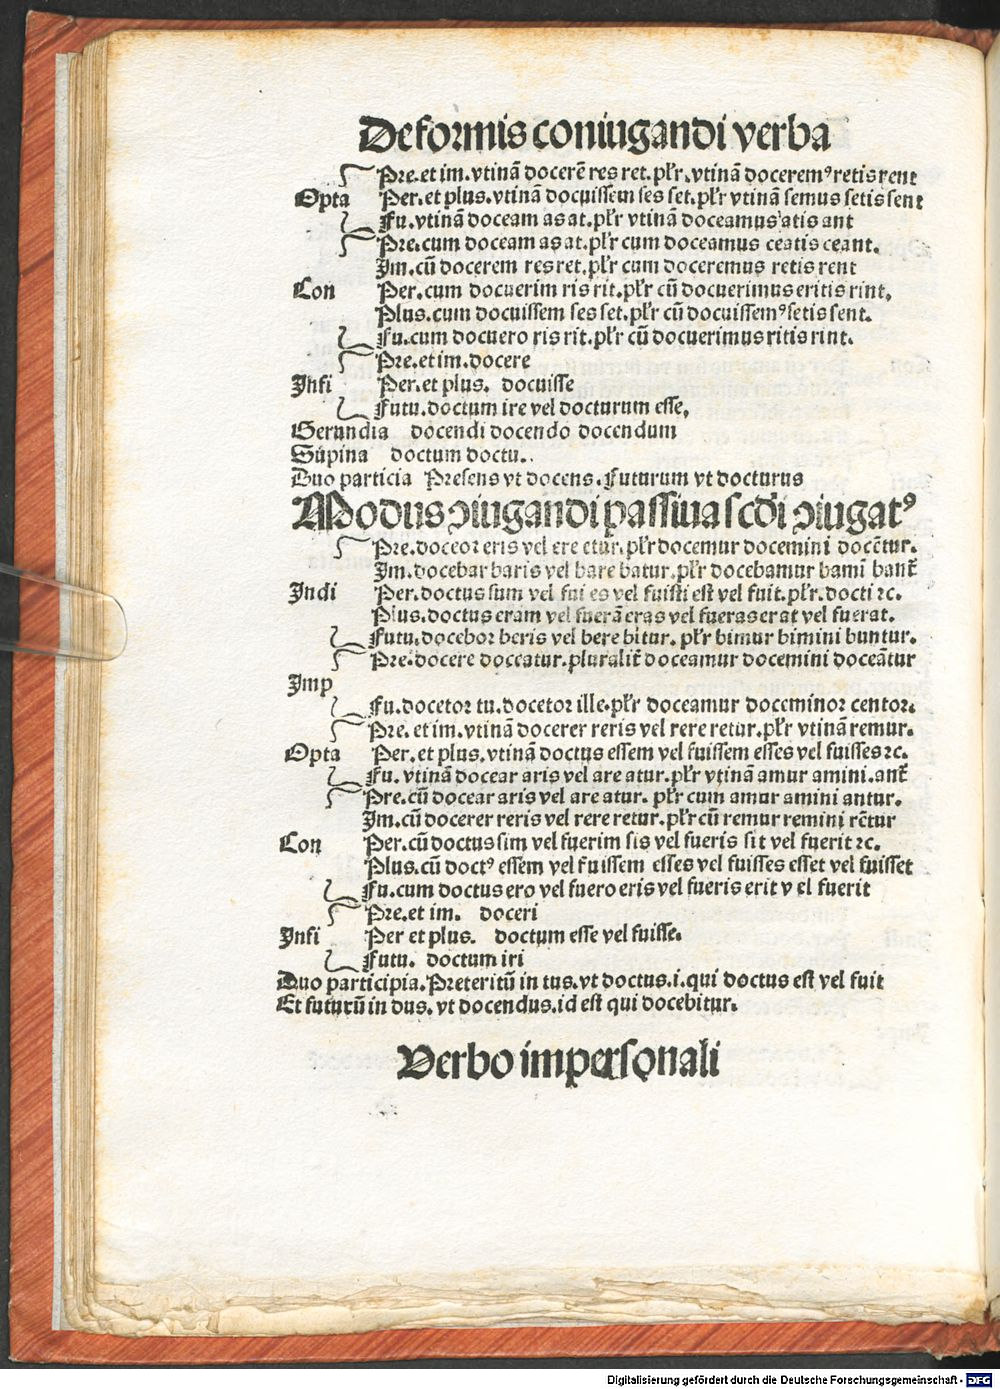 De formis coniugandi verba
Pre. et im. vtinā docerē res ret. pl̄r. vtinā doceremꝰ retis rent
Opta Per. et plus. vtinā docuissem ses set. pl̄r vtinā semus setis sent
Fu. vtinā doceam as at. pl̄r vtinā doceamus atis ant
Pre. cum doceam as at. pl̄r cum doceamus ceatis ceant.
Im. cū docerem res ret. pl̄r cum doceremus retis rent
Con Per. cum docuerim ris rit. pl̄r cū docuerimus eritis rint.
Plus. cum docuissem ses set. pl̄r cū docuissemꝰ setis sent.
Fu. cum docuero ris rit. pl̄r cū docuerimus ritis rint.
Pre. et im. docere
Infi Per. et plus. docuisse
Futu. doctum ire vel docturum esse,
Gerundia docendi docendo docendum
Supina doctum doctu..
Duo particia Presens vt docens. Futurum vt docturus
Modus ↄiugandi passiua scdi ↄiugatꝰ
Pre. doceor eris vel ere etur. pl̄r docemur docemini docētur.
Im. docebar baris vel bare batur. pl̄r docebamur bamī bant̄
Indi Per. doctus sum vel fui es vel fuisti est vel fuit. pl̄r. docti ⁊c.
Plus. doctus eram vel fuerā eras vel fueras erat vel fuerat.
Futu. docebor beris vel bere bitur. pl̄r bimur bimini buntur.
Pre. docere doceatur. pluralit̄ doceamur docemini doceātur
Imp
Fu. docetor tu. docetor ille. pl̄r doceamur doceminor centor.
Pre. et im. vtinā docerer reris vel rere retur. pl̄r vtinā remur.
Opta Per. et plus. vtinā doctus essem vel fuissem esses vel fuisses ⁊c.
Fu. vtinā docear aris vel are atur. pl̄r vtinā amur amini. ant̄
Pre. cū docear aris vel are atur. pl̄r cum amur amini antur.
Im. cū docerer reris vel rere retur. pl̄r cū remur remini rētur
Con Per. cū doctus sim vel fuerim sis vel fueris sit vel fuerit ⁊c.
Plus. cū doctꝰ essem vel fuissem esses vel fuisses esset vel fuisset
Fu. cum doctus ero vel fuero eris vel fueris erit v el fuerit
Pre. et im. doceri
Infi Per et plus. doctum esse vel fuisse.
Futu. doctum iri
Duo participia. Preteritū in tus. vt doctus. i. qui doctus est vel fuit
Et futurū in dus. vt docendus. id est qui docebitur.
Verbo impersonali
Digitalisierung gefördert durch die Deutsche Forschungsgemeinschaft - DFG